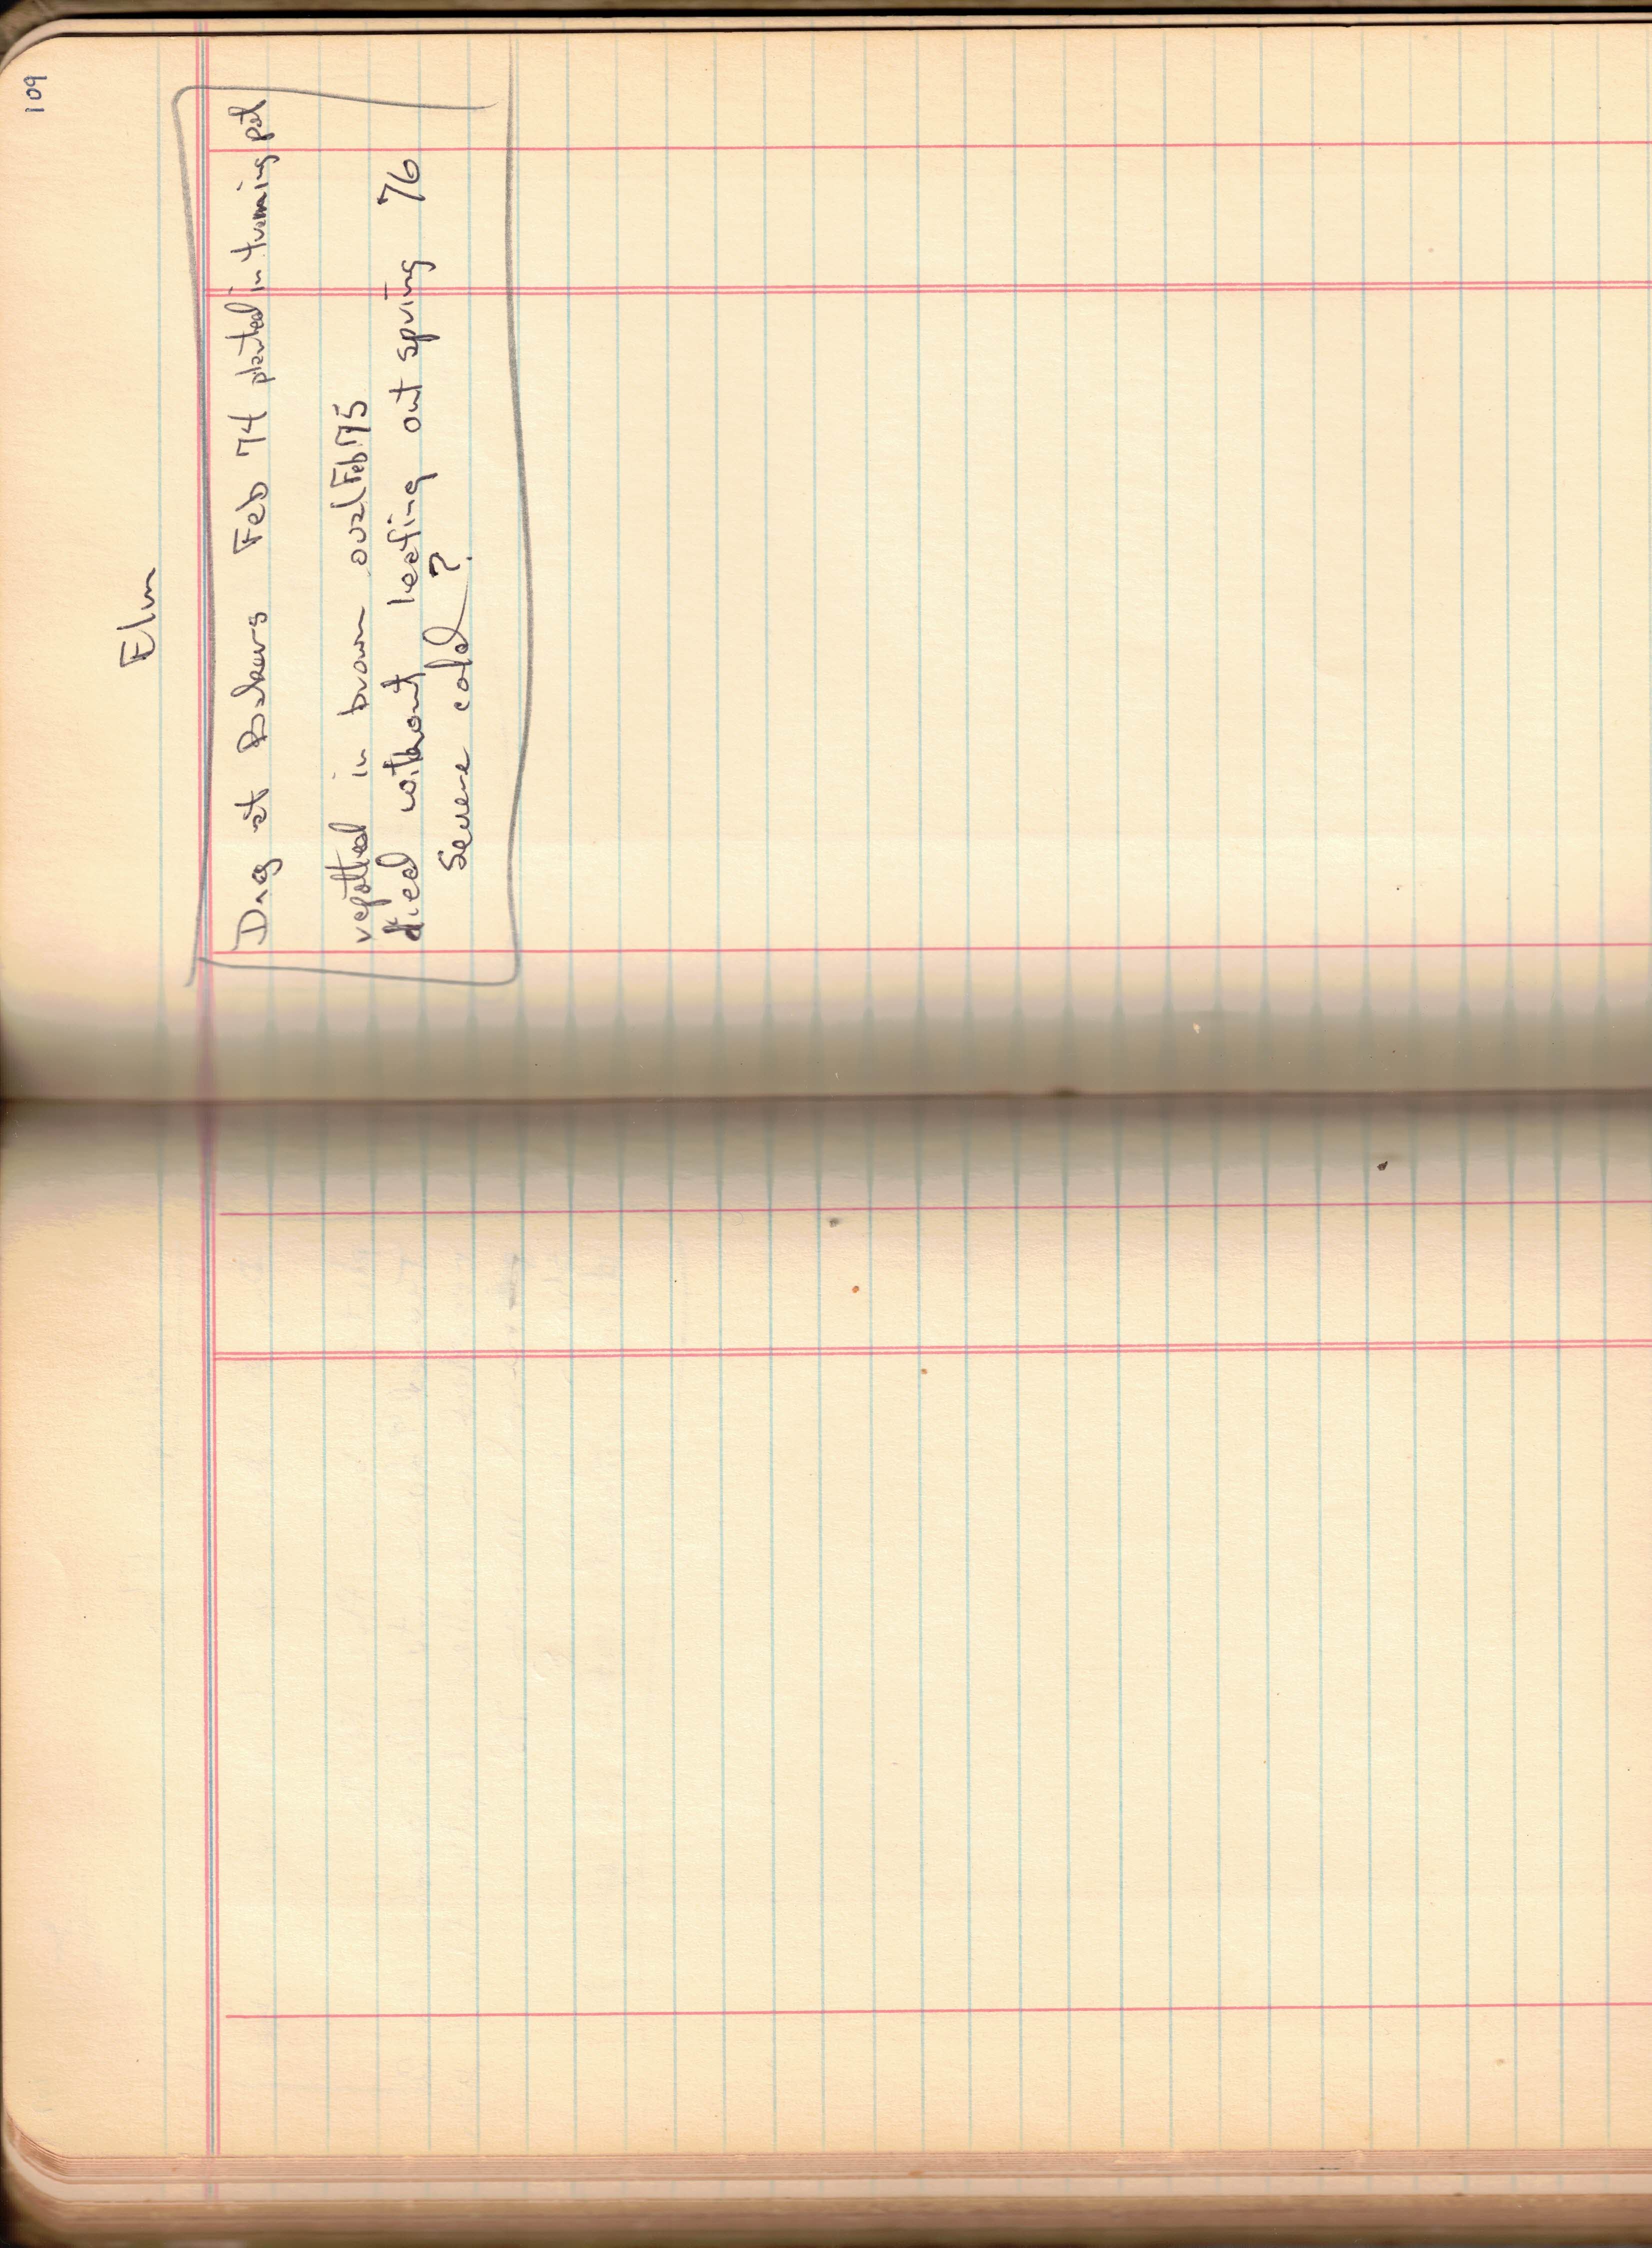 109
Elm
Dug at Bakers Feb 74 planted in training pot
repotted in brown oval Feb 75
died without leafing out spring 76
Severe cold ?